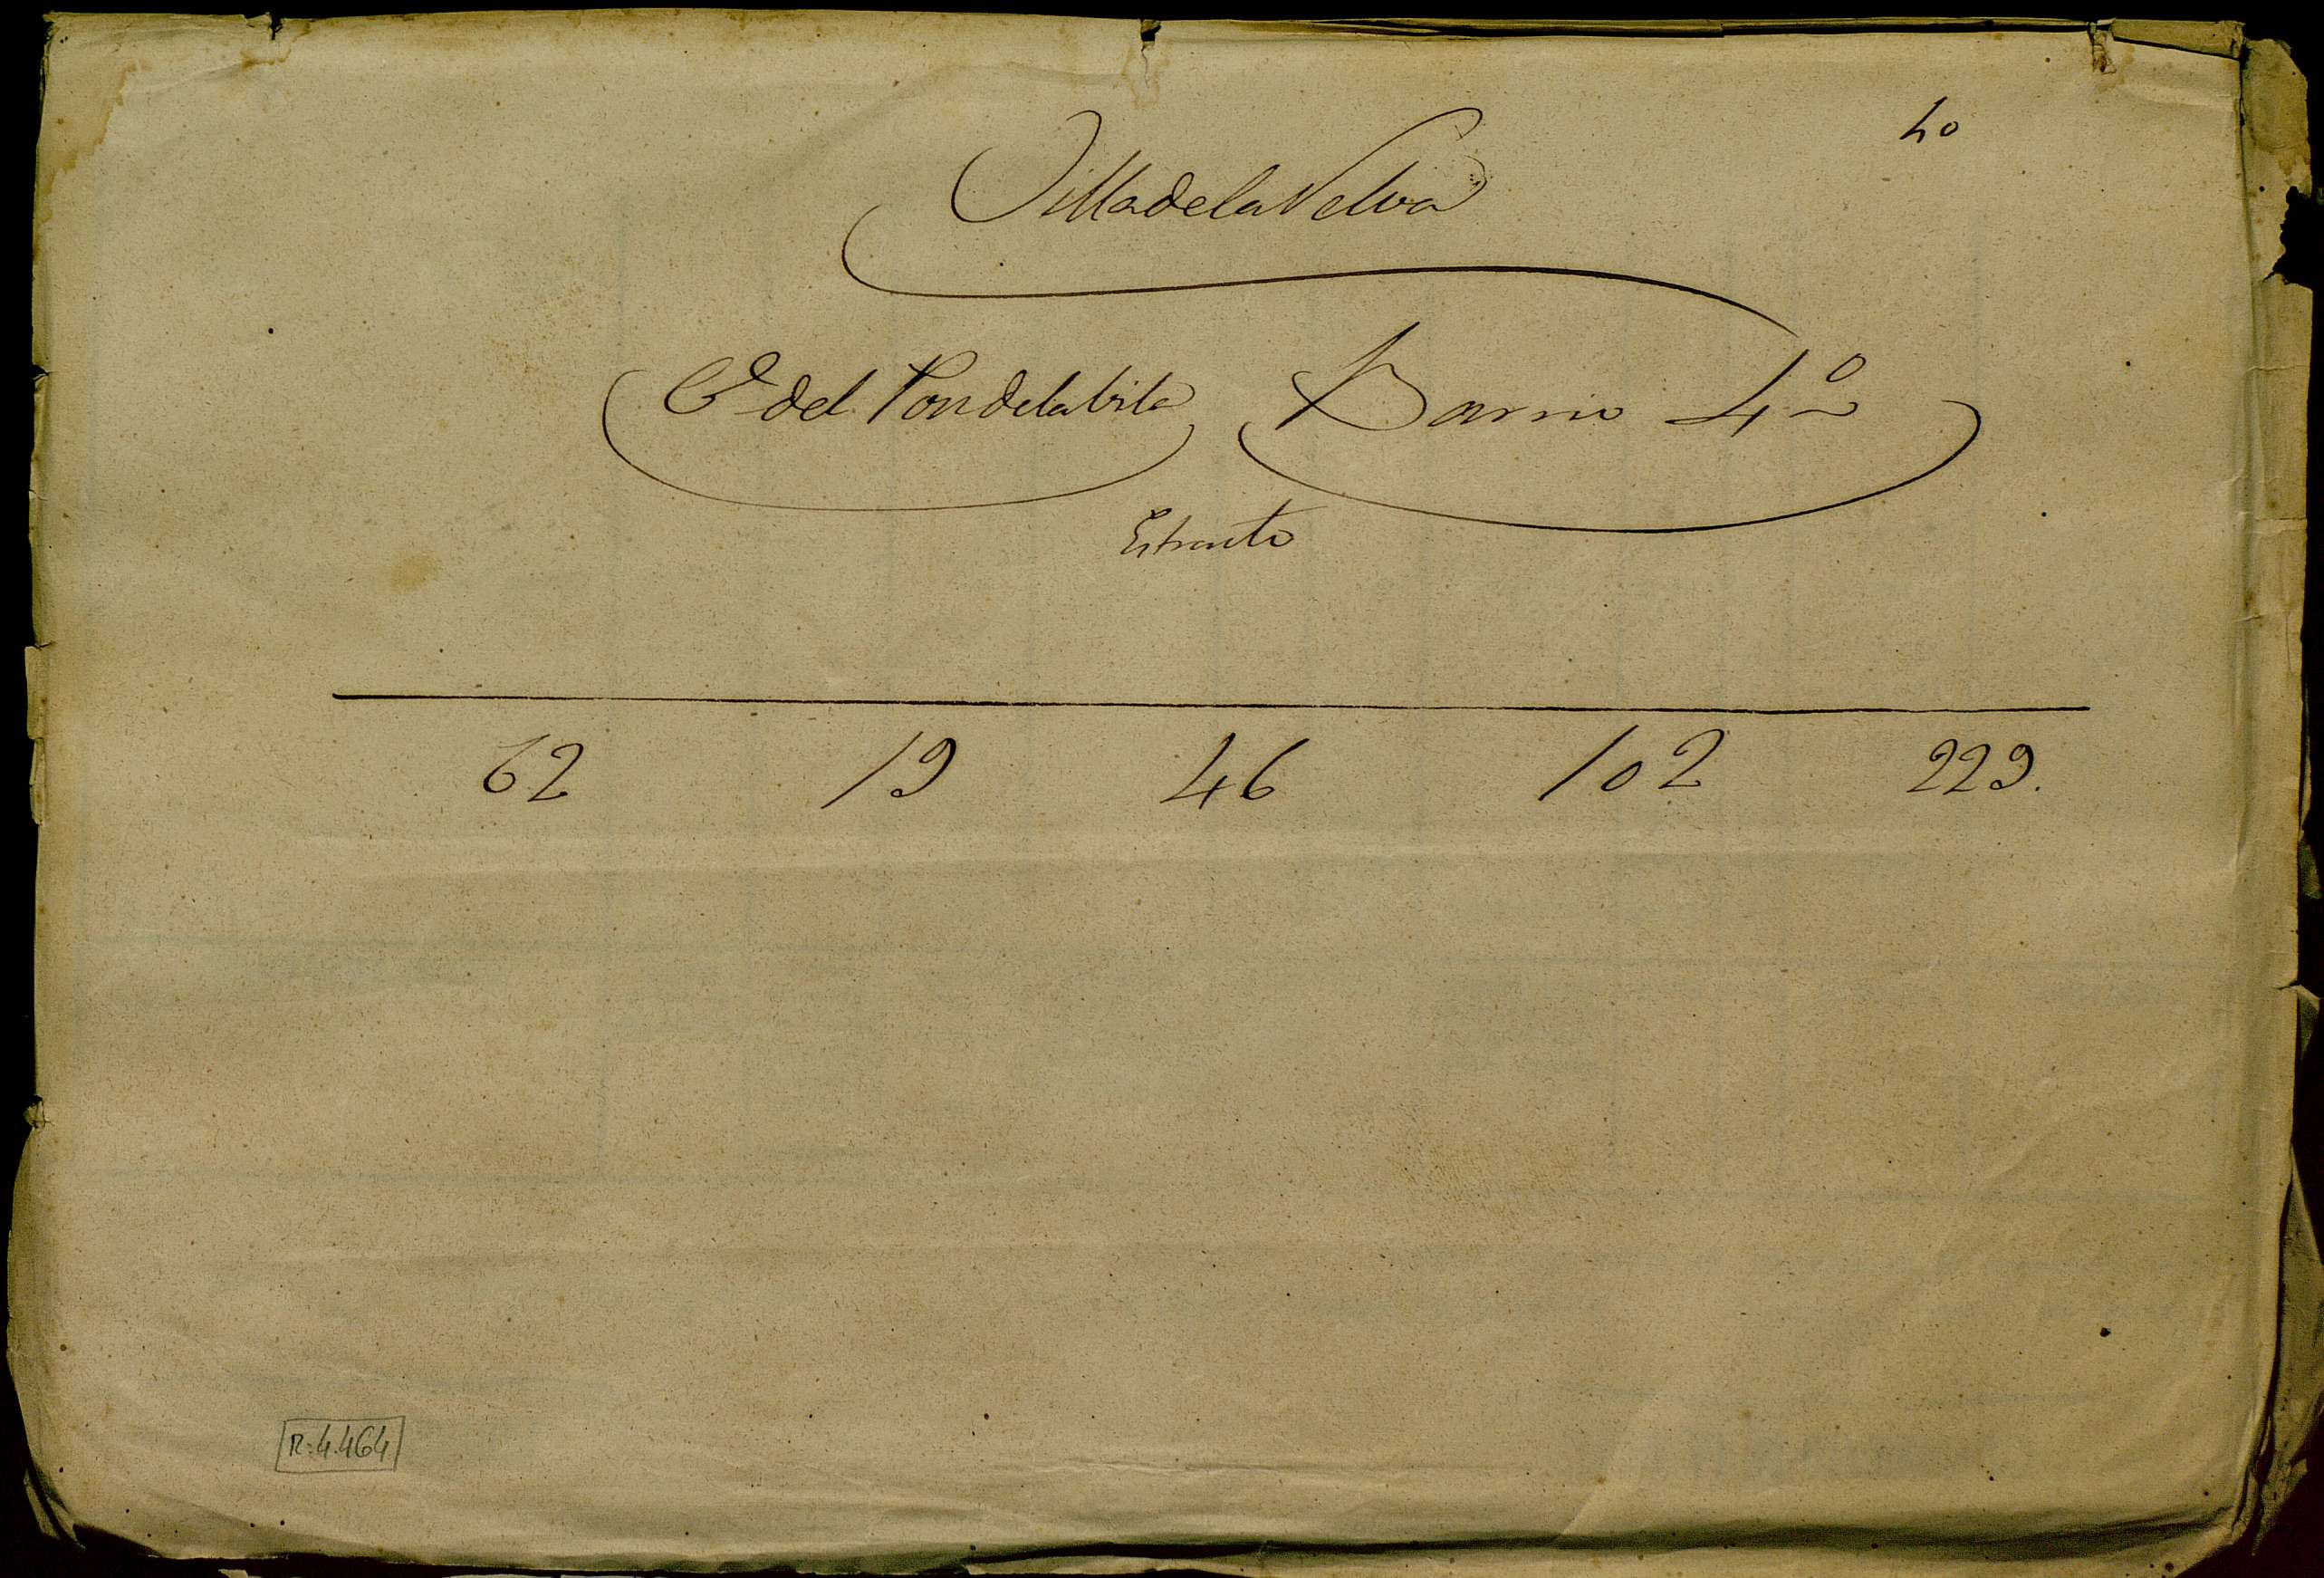 40
Villa de la Selva
C.e del Pon de la bila Barrio 4º
Estracto
62 19 46 102 229.
R.4.464